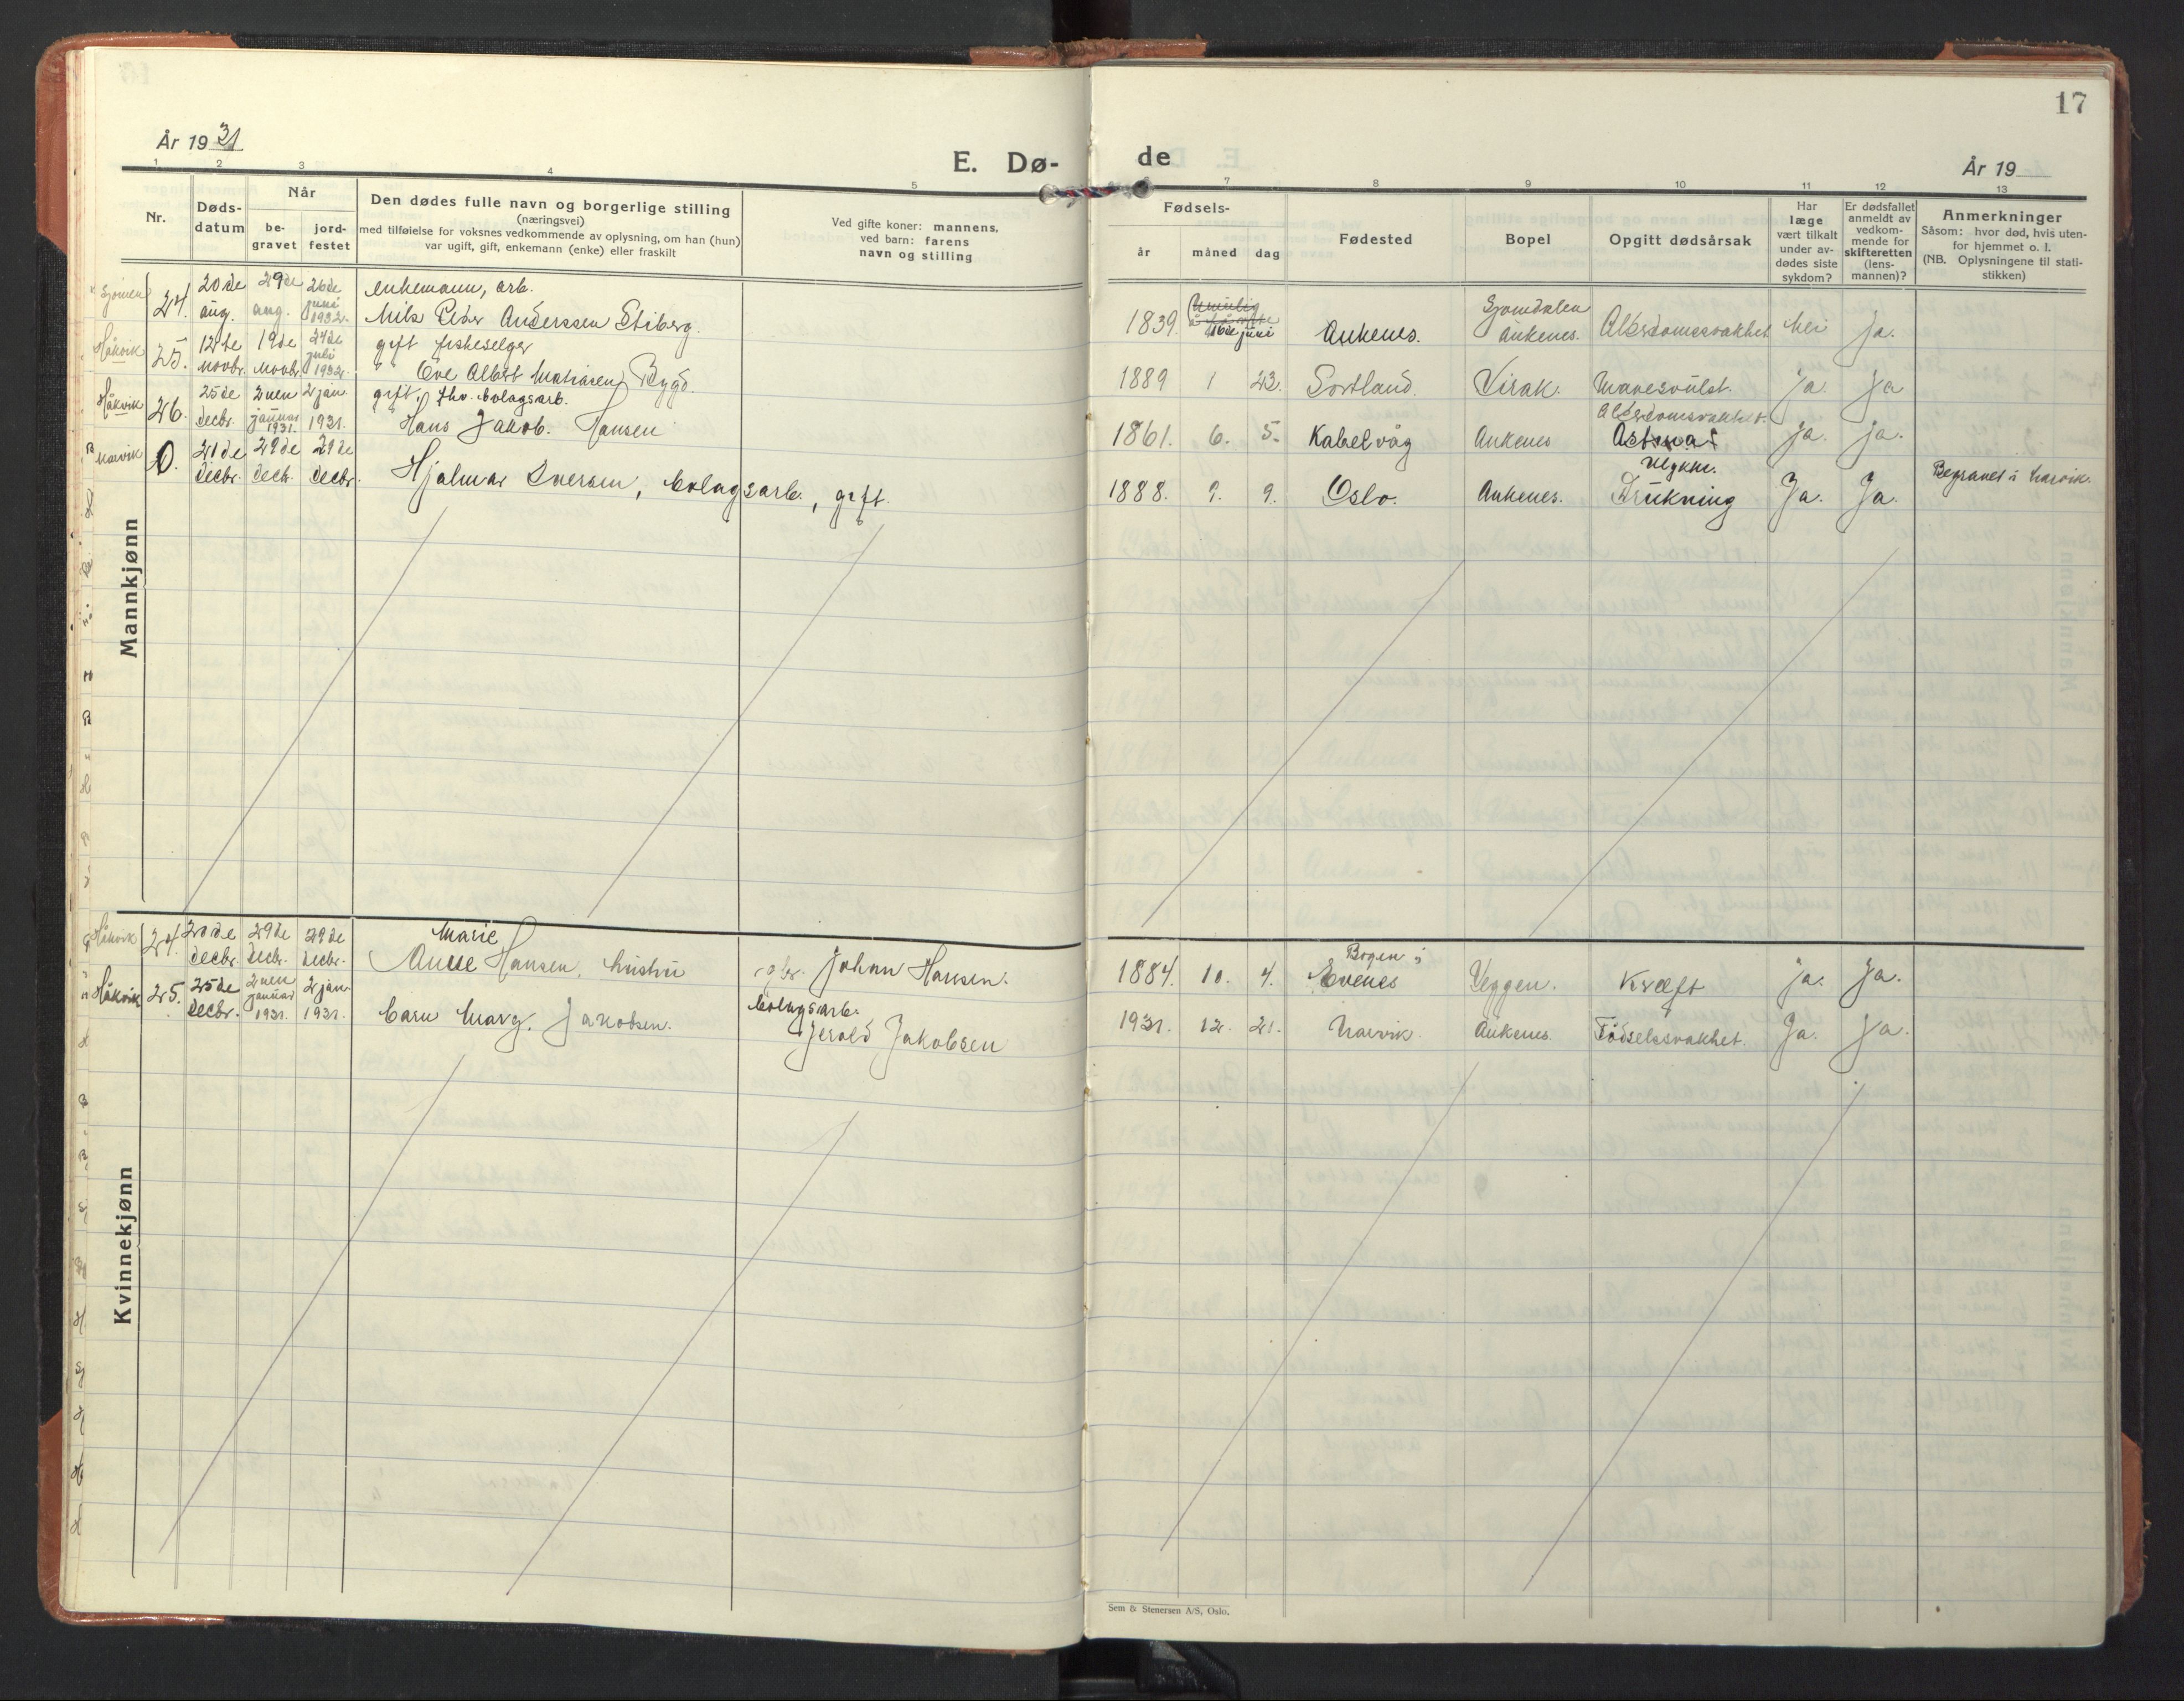 År 1931
E. Dø-
1 2 3 4 5
Nr.
Døds-
datum
Når
be-
gravet
jord-
festet
Den dødes fulle navn og borgerlige stilling
(næringsvei)
med tilføielse for voksnes vedkommende av oplysning, om han (hun)
var ugift, gift, enkemann (enke) eller fraskilt
Ved gifte koner: mannens,
ved barn: farens
navn og stilling
Mannkjønn
Sjomen 24. 20de aug. 29de aug. 26de juni 1932.
enkemann, arb.
Nils Peder Anderssen Stiberg.
Håkvik 25. 12te novbr. 19de novbr. 24de juli 1932.
gift fiskeselger
" Ove Albert Mathisen Bygd.
Håkvik 26. 25de decbr. 2nen januar 1931. 2 jan. 1931.
gift, fhv. bolagsarb.
Hans Jakob. Hansen
Narvik 0. 21de decbr. 29de decb. 29de decbr.
Hjalmar Iversen, bolagsarb., gift.
Kvinnekjønn
Håkvik 24. 20de decbr. 29de decbr. 29de decbr.
Marie
Anne Hansen, hustru
gbr. Johan Hansen.
Håkvik 25. 25de decbr. 2nen januar 1931. 2 jan 1931.
barn Marg. Jakobsen.
bolagsarb.
Jerold Jakobsen
17
de
År 19
7 8 9 10 11 12 13
Fødsels-
år måned dag
Fødested
Bopel
Opgitt dødsårsak
Har
læge
vært tilkalt
under av-
dødes siste
sykdom?
Er dødsfallet
anmeldt av
vedkom-
mende for
skifteretten
(lens-
mannen)?
Anmerkninger
Såsom: hvor død, hvis uten-
for hjemmet o. l.
(NB. Oplysningene til stati-
stikken)
1839. 16de juni Ankenes. Sjomdalen Ankenes. Alderdomssvakhet Nei Ja.
1889 1 23. Sortland. Virak. Mavesvulst. Ja. Ja
1861. 6. 5. Kabelvåg Ankenes Alderdomssvakhet. Astma ja. ja.
1888. 9. 9. Oslo. Ankenes. Ulykke. Drukning Ja. Ja. Begravet i Narvik.
1884. 10. 4. Bogen i Evenes Veggen. Kræft ja. Ja.
1931. 12. 21. Narvik. Ankenes. Fødselssvakhet. Ja. Ja.
Sem & Stenersen A/S, Oslo.